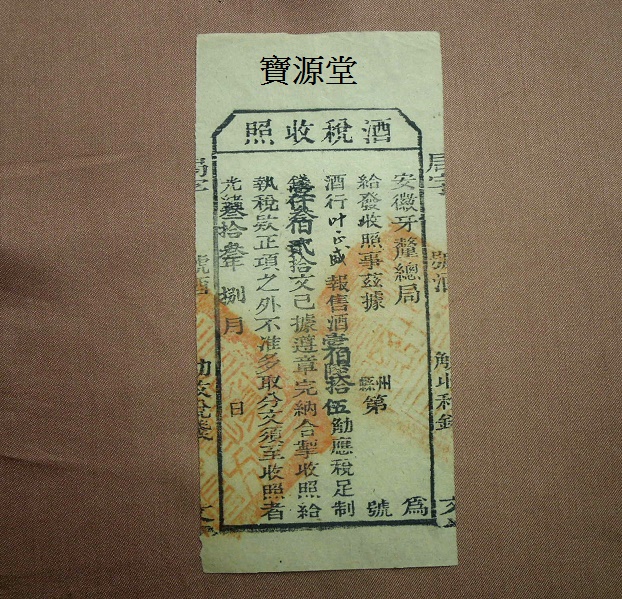 寶源堂
酒稅收照
安徽牙釐總局 為
給發收照事茲據 州縣第 號
酒行叶正盛報售酒壹佰陸拾伍觔應稅足制
錢 仟叁佰貳拾文已據遵章完納合掣收照給
執稅欵正項之外不准多取分文須至收照者
光緒叁拾叁年捌月 日